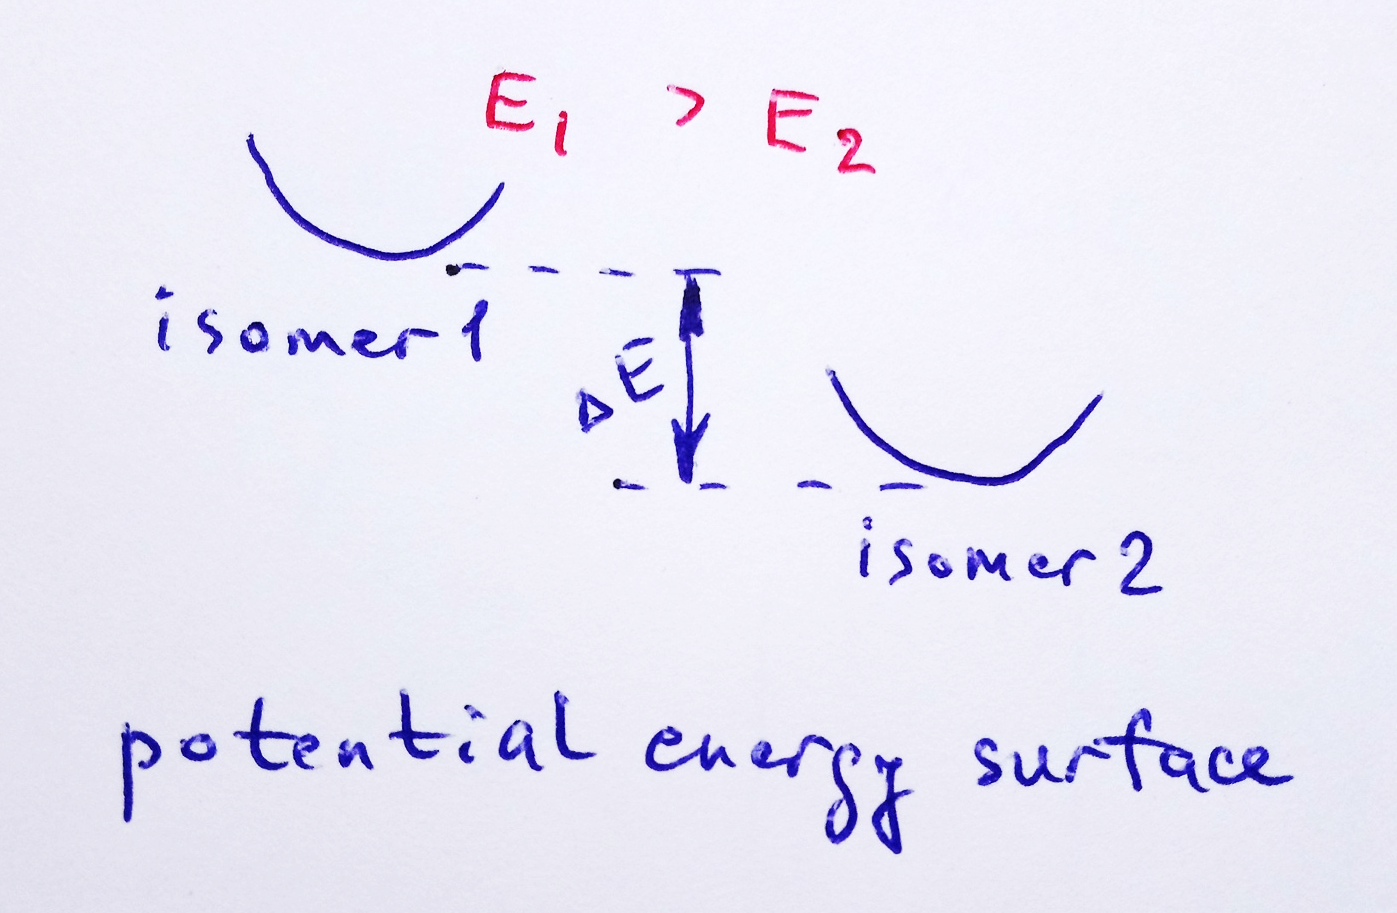 E1 > E2
isomer 1
ΔE
isomer 2
potential energy surface